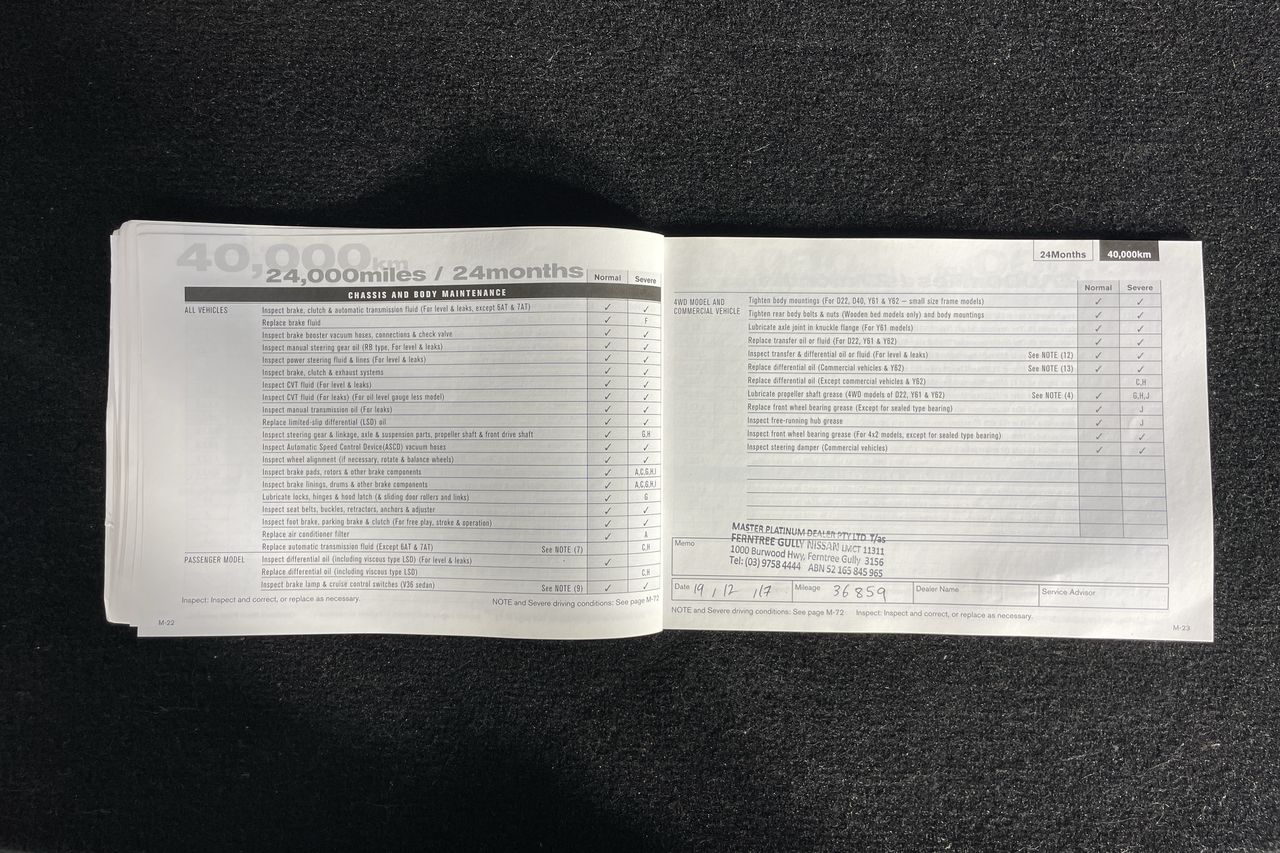 40,000km
24,000miles / 24months
Normal Severe
CHASSIS AND BODY MAINTENANCE
ALL VEHICLES Inspect brake, clutch & automatic transmission fluid (For level & leaks, except 6AT & 7AT) ✓ ✓
Replace brake fluid ✓ F
Inspect brake booster vacuum hoses, connections & check valve ✓ ✓
Inspect manual steering gear oil (RB type, For level & leaks) ✓ ✓
Inspect power steering fluid & lines (For level & leaks) ✓ ✓
Inspect brake, clutch & exhaust systems ✓ ✓
Inspect CVT fluid (For level & leaks) ✓ ✓
Inspect CVT fluid (For leaks) (For oil level gauge less model) ✓ ✓
Inspect manual transmission oil (For leaks) ✓ ✓
Replace limited-slip differential (LSD) oil ✓ ✓
Inspect steering gear & linkage, axle & suspension parts, propeller shaft & front drive shaft ✓ G,H
Inspect Automatic Speed Control Device(ASCD) vacuum hoses ✓ ✓
Inspect wheel alignment (if necessary, rotate & balance wheels) ✓ ✓
Inspect brake pads, rotors & other brake components ✓ A,C,G,H,I
Inspect brake linings, drums & other brake components ✓ A,C,G,H,I
Lubricate locks, hinges & hood latch (& sliding door rollers and links) ✓ G
Inspect seat belts, buckles, retractors, anchors & adjuster ✓ ✓
Inspect foot brake, parking brake & clutch (For free play, stroke & operation) ✓ ✓
Replace air conditioner filter ✓ A
Replace automatic transmission fluid (Except 6AT & 7AT) See NOTE (7) C,H
PASSENGER MODEL Inspect differential oil (including viscous type LSD) (For level & leaks) ✓
Replace differential oil (including viscous type LSD) C,H
Inspect brake lamp & cruise control switches (V36 sedan) See NOTE (9) ✓ ✓
Inspect: Inspect and correct, or replace as necessary. NOTE and Severe driving conditions: See page M-72
M-22
24Months 40,000km
Normal Severe
4WD MODEL AND Tighten body mountings (For D22, D40, Y61 & Y62 – small size frame models) ✓ ✓
COMMERCIAL VEHICLE Tighten rear body bolts & nuts (Wooden bed models only) and body mountings ✓ ✓
Lubricate axle joint in knuckle flange (For Y61 models) ✓ ✓
Replace transfer oil or fluid (For D22, Y61 & Y62) ✓ ✓
Inspect transfer & differential oil or fluid (For level & leaks) See NOTE (12) ✓ ✓
Replace differential oil (Commercial vehicles & Y62) See NOTE (13) ✓ ✓
Replace differential oil (Except commercial vehicles & Y62) C,H
Lubricate propeller shaft grease (4WD models of D22, Y61 & Y62) See NOTE (4) ✓ G,H,J
Replace front wheel bearing grease (Except for sealed type bearing) ✓ J
Inspect free-running hub grease ✓ J
Inspect front wheel bearing grease (For 4x2 models, except for sealed type bearing) ✓ ✓
Inspect steering damper (Commercial vehicles) ✓ ✓
MASTER PLATINUM DEALER PTY LTD T/as
Memo FERNTREE GULLY NISSAN LMCT 11311
1000 Burwood Hwy, Ferntree Gully 3156
Tel: (03) 9758 4444 ABN 52 165 845 965
Date 19 / 12 /17 Mileage 36859 Dealer Name Service Advisor
NOTE and Severe driving conditions: See page M-72 Inspect: Inspect and correct, or replace as necessary.
M-23